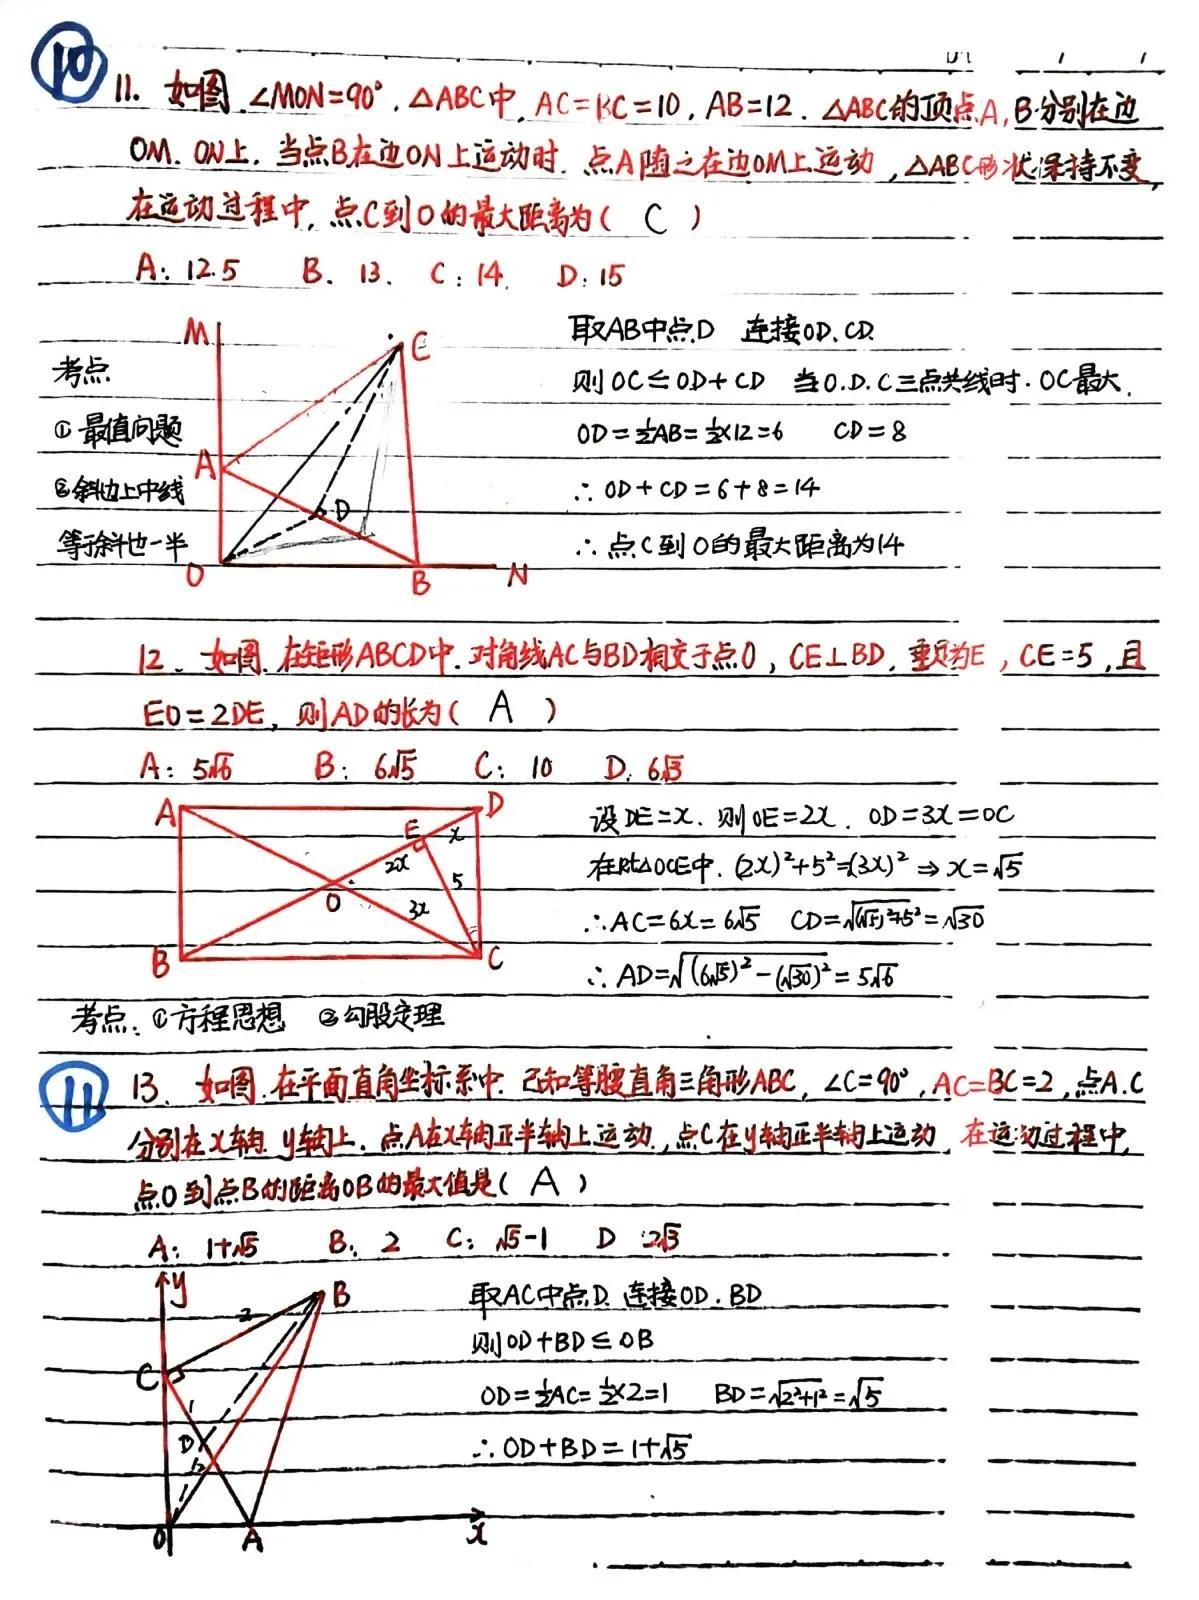 ⑩
11. 如图.∠MON=90°.△ABC中,AC=BC=10,AB=12.△ABC的顶点A,B分别在边
OM.ON上.当点B在边ON上运动时.点A随之在边OM上运动,△ABC形状保持不变,
在运动过程中,点C到O的最大距离为( C )
A: 12.5 B. 13. C: 14. D: 15
取AB中点D 连接OD.CD.
则OC≤OD+CD 当O.D.C三点共线时.OC最大.
OD=½AB=½×12=6 CD=8
∴OD+CD=6+8=14
∴点C到O的最大距离为14
考点
①最值问题
②斜边上中线
等于斜边一半
M
C
A
D
O
B
N
12. 如图.在矩形ABCD中.对角线AC与BD相交于点O,CE⊥BD,垂足为E,CE=5,且
EO=2DE,则AD的长为( A )
A: 5√6 B: 6√5 C: 10 D. 6√3
设DE=x.则OE=2x.OD=3x=OC
在Rt△OCE中.(2x)²+5²=(3x)²⇒x=√5
∴AC=6x=6√5 CD=√(√5)²+5²=√30
∴AD=√(6√5)²-(√30)²=5√6
A
D
E
x
2x
5
O
3x
B
C
考点:①方程思想 ②勾股定理
⑪
13. 如图.在平面直角坐标系中.已知等腰直角三角形ABC,∠C=90°,AC=BC=2,点A.C
分别在x轴.y轴上.点A在x轴正半轴上运动,点C在y轴正半轴上运动,在运动过程中,
点O到点B的距离OB的最大值是( A )
A: 1+√5 B: 2 C: √5-1 D: 2√3
取AC中点D.连接OD.BD
则OD+BD≤OB
OD=½AC=½×2=1 BD=√2²+1²=√5
∴OD+BD=1+√5
y
B
2
C
1
D
O
A
x